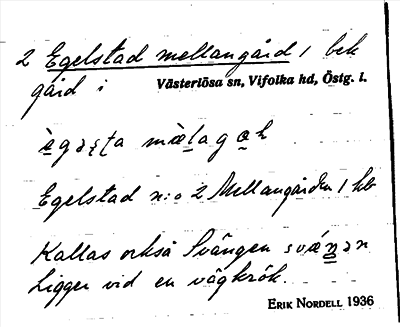 2 Egelstad mellangård 1 bek
gård i Västerlösa sn, Vifolka hd, Östg. l.
Egelstad n:o 2 Mellangården 1 hb
Kallas också Svängen
Ligger vid en vägkrök.
ERIK NORDELL 1936